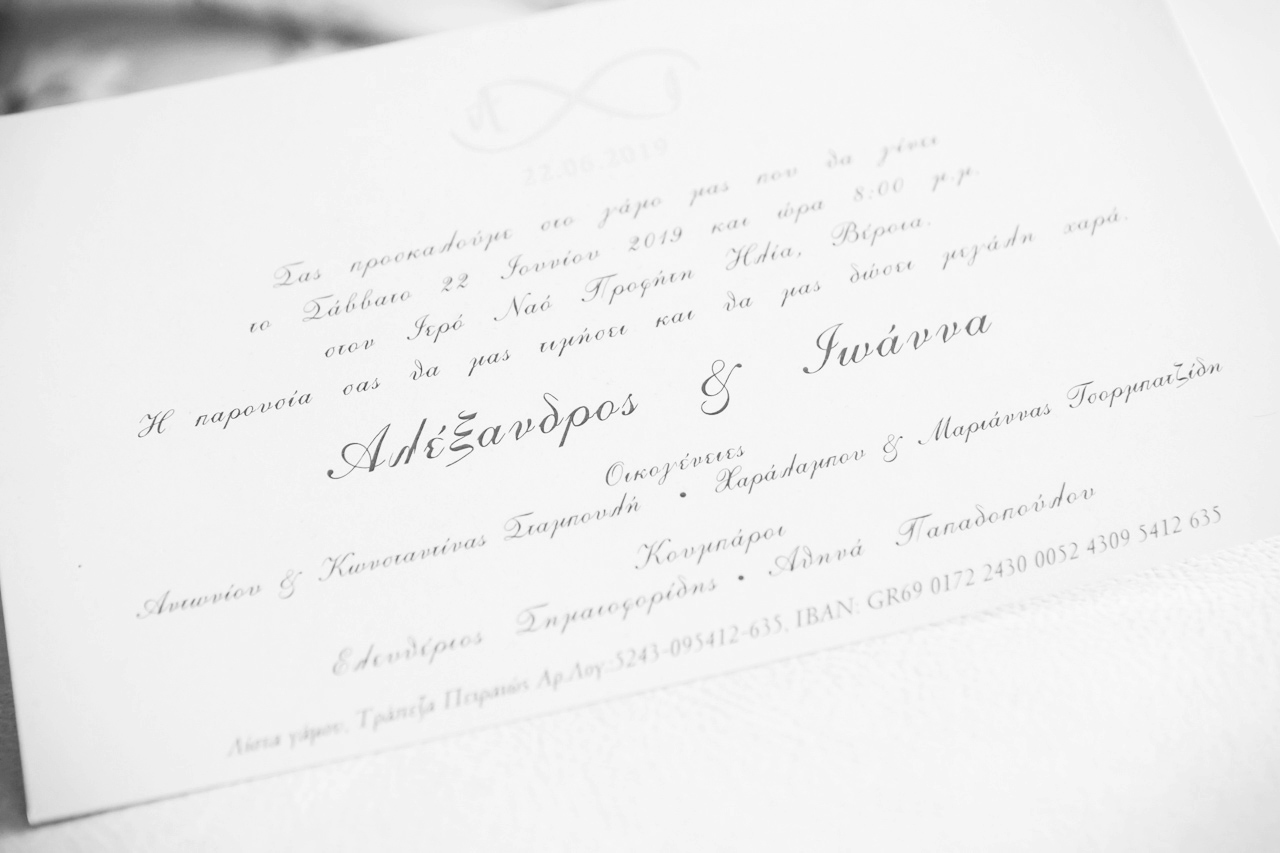 22.06.2019
Σας προσκαλούμε στο γάμο μας που θα γίνει
το Σάββατο 22 Ιουνίου 2019 και ώρα 8:00 μ.μ.
στον Ιερό Ναό Προφήτη Ηλία, Βέροια.
Η παρουσία σας θα μας τιμήσει και θα μας δώσει μεγάλη χαρά.
Αλέξανδρος & Ιωάννα
Οικογένειες
Αντωνίου & Κωνσταντίνας Σιαμπουλή • Χαράλαμπου & Μαριάννας Τσορμπατζίδη
Κουμπάροι
Ελευθέριος Σημαιοφορίδης • Αθηνά Παπαδοπούλου
Λίστα γάμου, Τράπεζα Πειραιώς Αρ.Λογ.:5243-095412-635, IBAN: GR69 0172 2430 0052 4309 5412 635